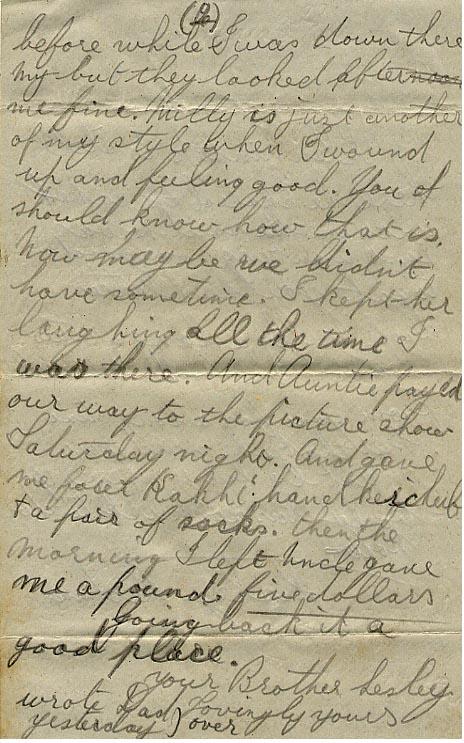 before while I was down there
my but they looked after
me fine. Milly is just another
of my style when I wound
up and feeling good. You of
should know how that is.
Now may be we didn't
have sometime. I kept her
laughing all the time I
was there. And Auntie payed
our way to the picture show
Saturday night. And gave
me four Kakhi handkerchiefs
+ a pair of socks. then the
morning I left Uncle gave
me a pound five dollars
Going back it a
good place.
your Brother Lesley
wrote Dad Lovingly yours
yesterday) over